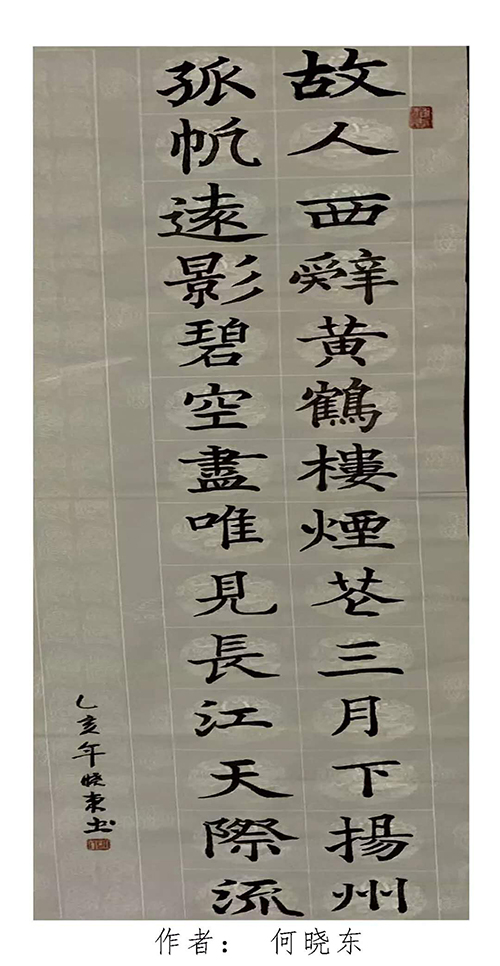 故人西辭黃鶴樓煙花三月下揚州
孤帆遠影碧空盡唯見長江天際流
乙亥年曉東书
作者： 何晓东